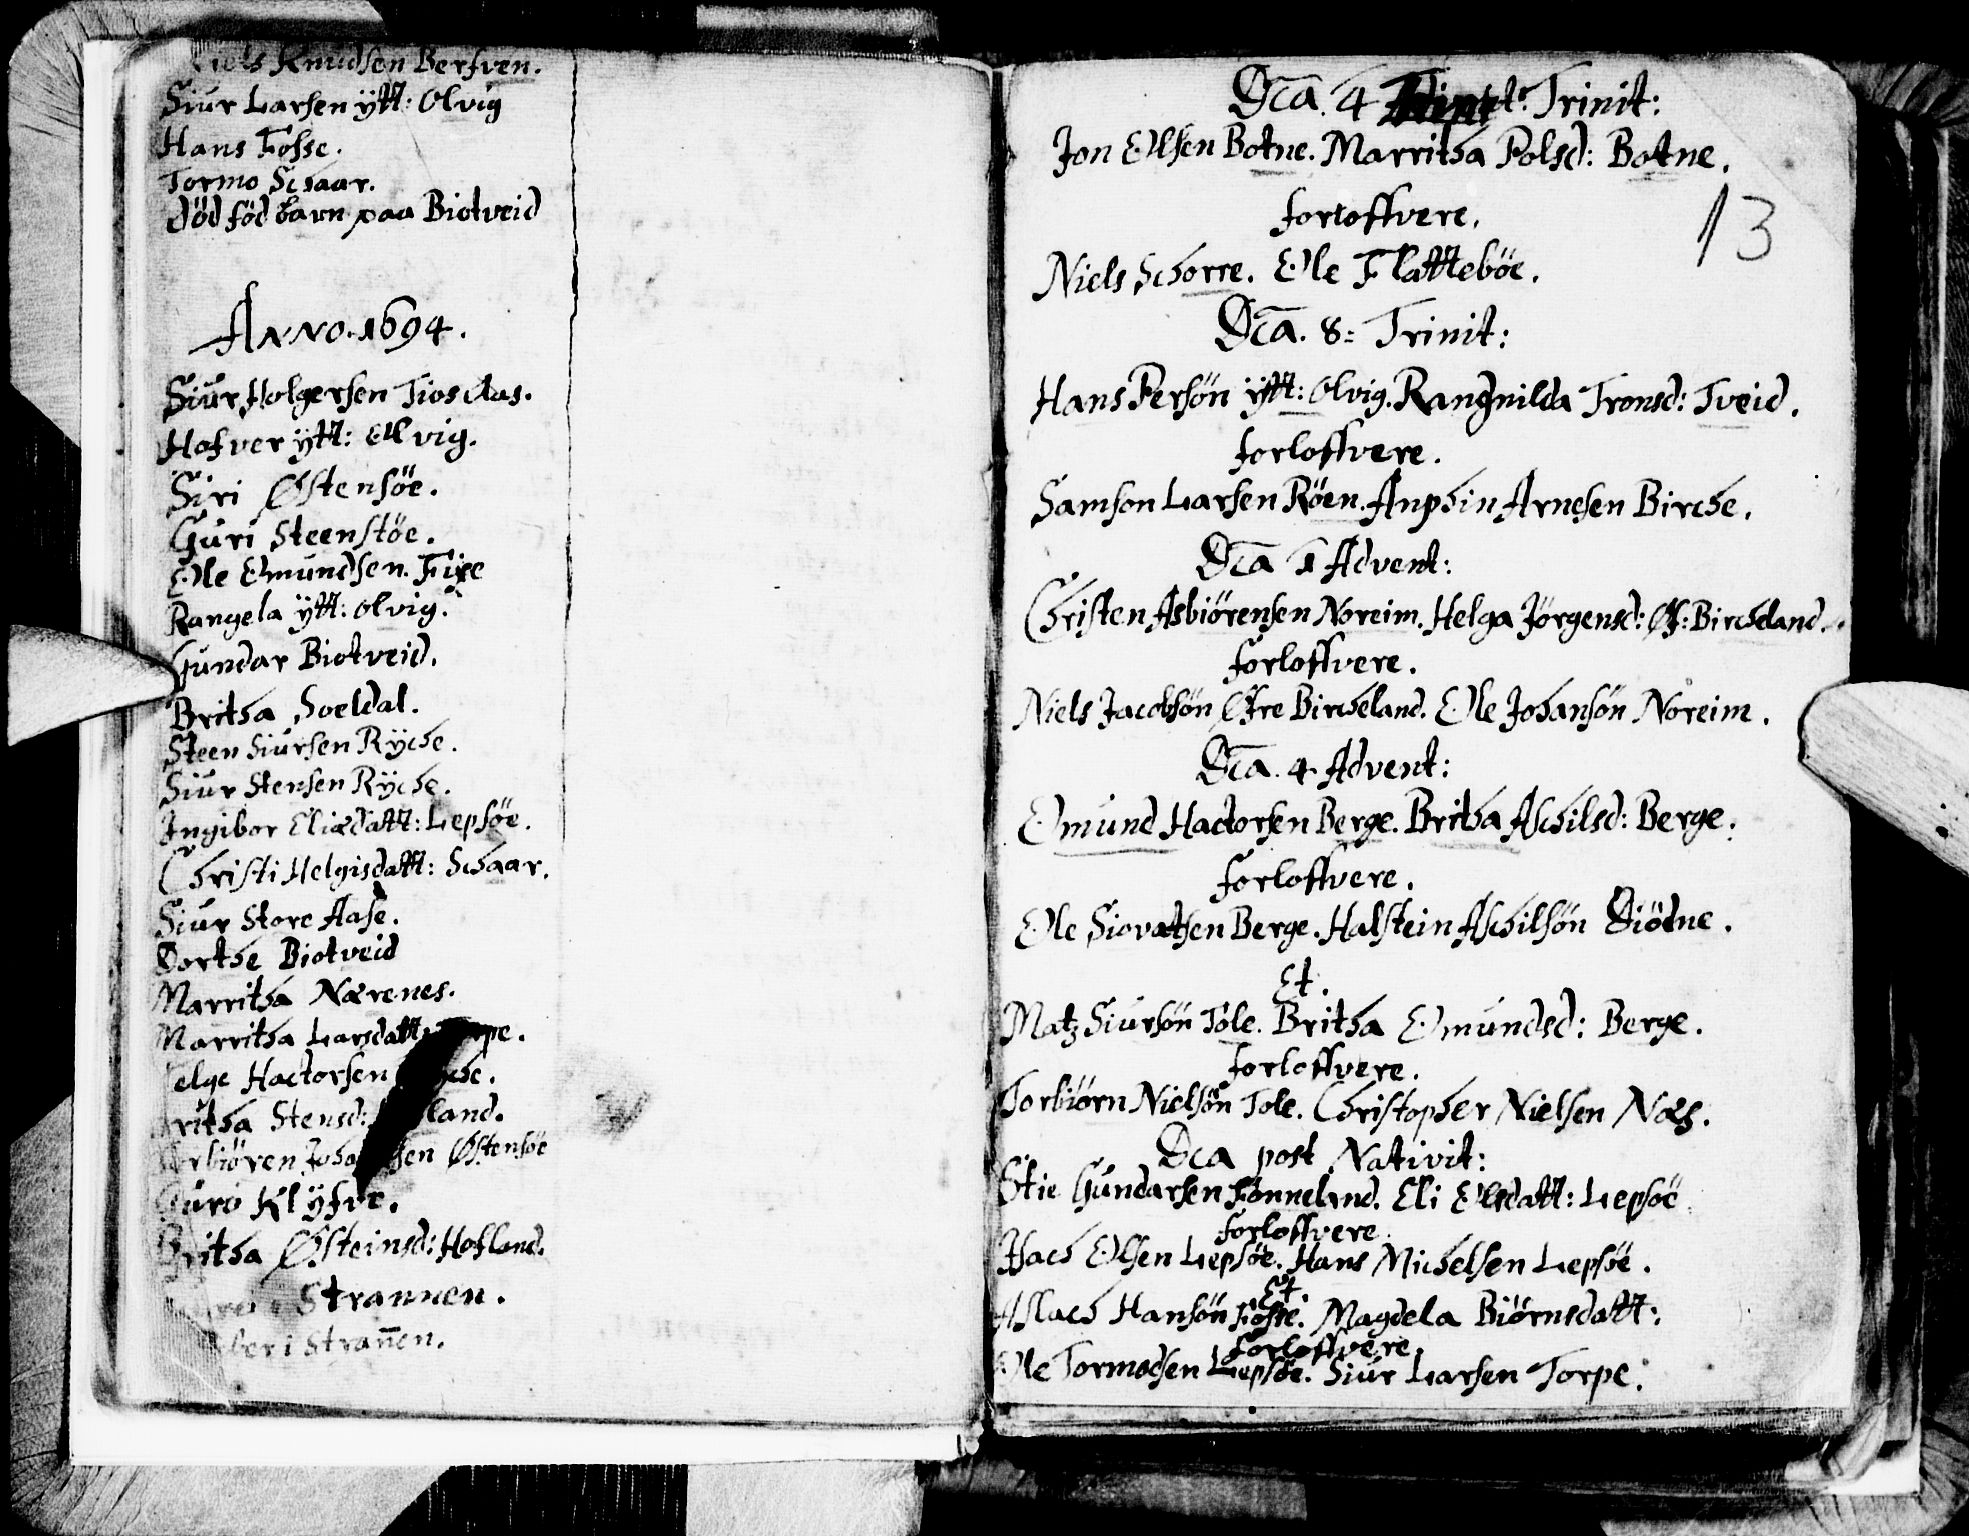 Niels Knudsen Berfven.
Siur Larsen ÿtt: Olvig
Hans Fosse.
Tormo Schaar.
död föd barn paa Biotveid
Anno. 1694.
Siur Holgersen Tios Aas.
Hafver ÿtt: Olvig.
Siri Østensöe.
Guri Steenstöe.
Ole Omundsen. Fixe
Rangela ÿtt: Olvig.
Gundar Biotveid.
Britha Soeldal.
Steen Siursen Rÿche.
Siur Stensen Rÿche.
Ingibor Eliædatt: Lepsöe.
Christi Helgisdatt: Schaar.
Siur Store Aase.
Dorthe Biotveid
Marritha Nærenes.
Marritha Larsdatt: Torpe.
elge Hactorsen
ritha Stensd: land.
rbiören Joha sen Østensöe
Guro Klÿfve.
Britha Østeinsd: Hofland.
Strannen.
beri Stran̄en.
Dca. 4 Trinit:
Jon Olsen Botne. Marritha Polsd: Botne.
forloffvere.
13
Niels Schorre. Ole Flatteböe.
Dca. 8: Trinit:
Hans Persön ÿtt: Olvig. Rangnilda Tronsd: Tveid.
forloffvere.
Samson Larsen Röen. Anphin Arnesen Birche.
Dca 1 Advent:
Christen Asbiörensen Noreim. Helga Jörgensd: Øf: Bircheland.
forloffvere.
Niels Jacobsön Øfre Bircheland. Ole Johansön Noreim.
Dca. 4 Advent:
Omund Hactorsen Berge. Britha Aschilsd: Berge.
forloffvere.
Ole Siovatsen Berge. Halstein Aschilsön Diödne.
Et.
Matz Siursön Tole. Britha Omundsd: Berge.
forloffvere.
Torbiörn Nielsön Tole. Christopher Nielsen Næs.
Dca post Nativit:
Stie Gundarsen Fonneland. Eli Olsdatt: Lepsöe
forloffvere.
Isach Olsen Lepsöe. Hans Michelsen Lepsöe.
Et.
Aslach Hansön Fosse. Magdela Biörnsdatt:
forloffvere.
Ole Tormodsen Lepsöe. Siur Larsen Torpe.